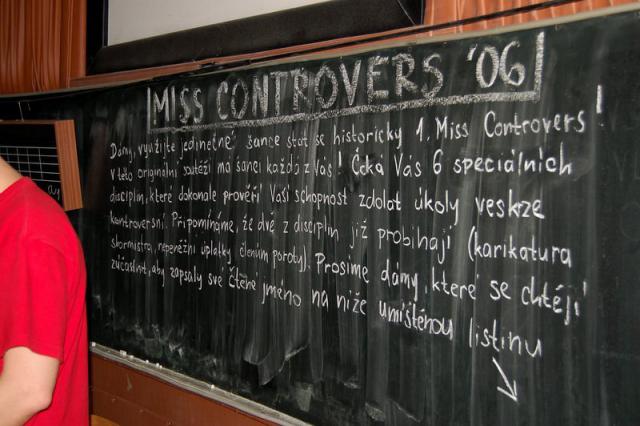 MISS CONTROVERS '06
Dámy, využijte jedinečné šance stát se historicky 1. Miss Controvers!
V této originální soutěži má šanci každá z Vás! Čeká Vás 6 speciálních
disciplin, které dokonale prověří Vaši schopnost zdolat úkoly veskze
kontroversní. Připomínáme, že dvě z disciplin již probíhají (karikatura
sbormistra, nepeněžní úplatky členům poroty). Prosíme dámy, které se chtějí
zúčastnit, aby zapsaly své čtěné jméno na níže umístěnou listinu